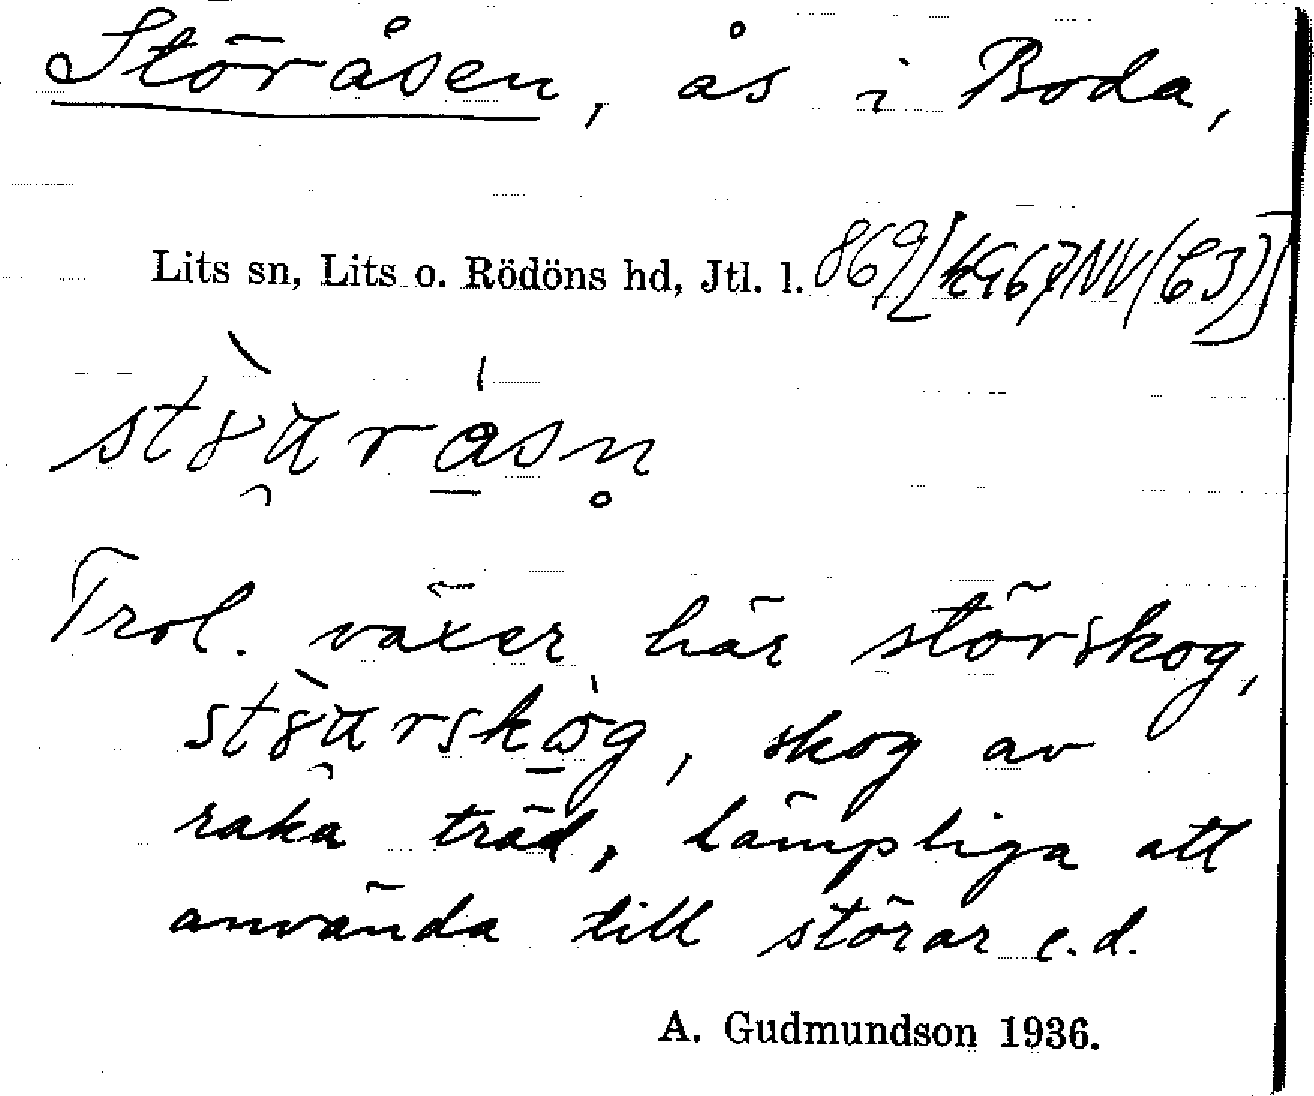 Störåsen, ås i Boda,
Lits sn, Lits o. Rödöns hd, Jtl. l.
Trol. växer här störskog,
skog av
raka träd, lämpliga att
använda till störar e.d.
A. Gudmundson 1936.